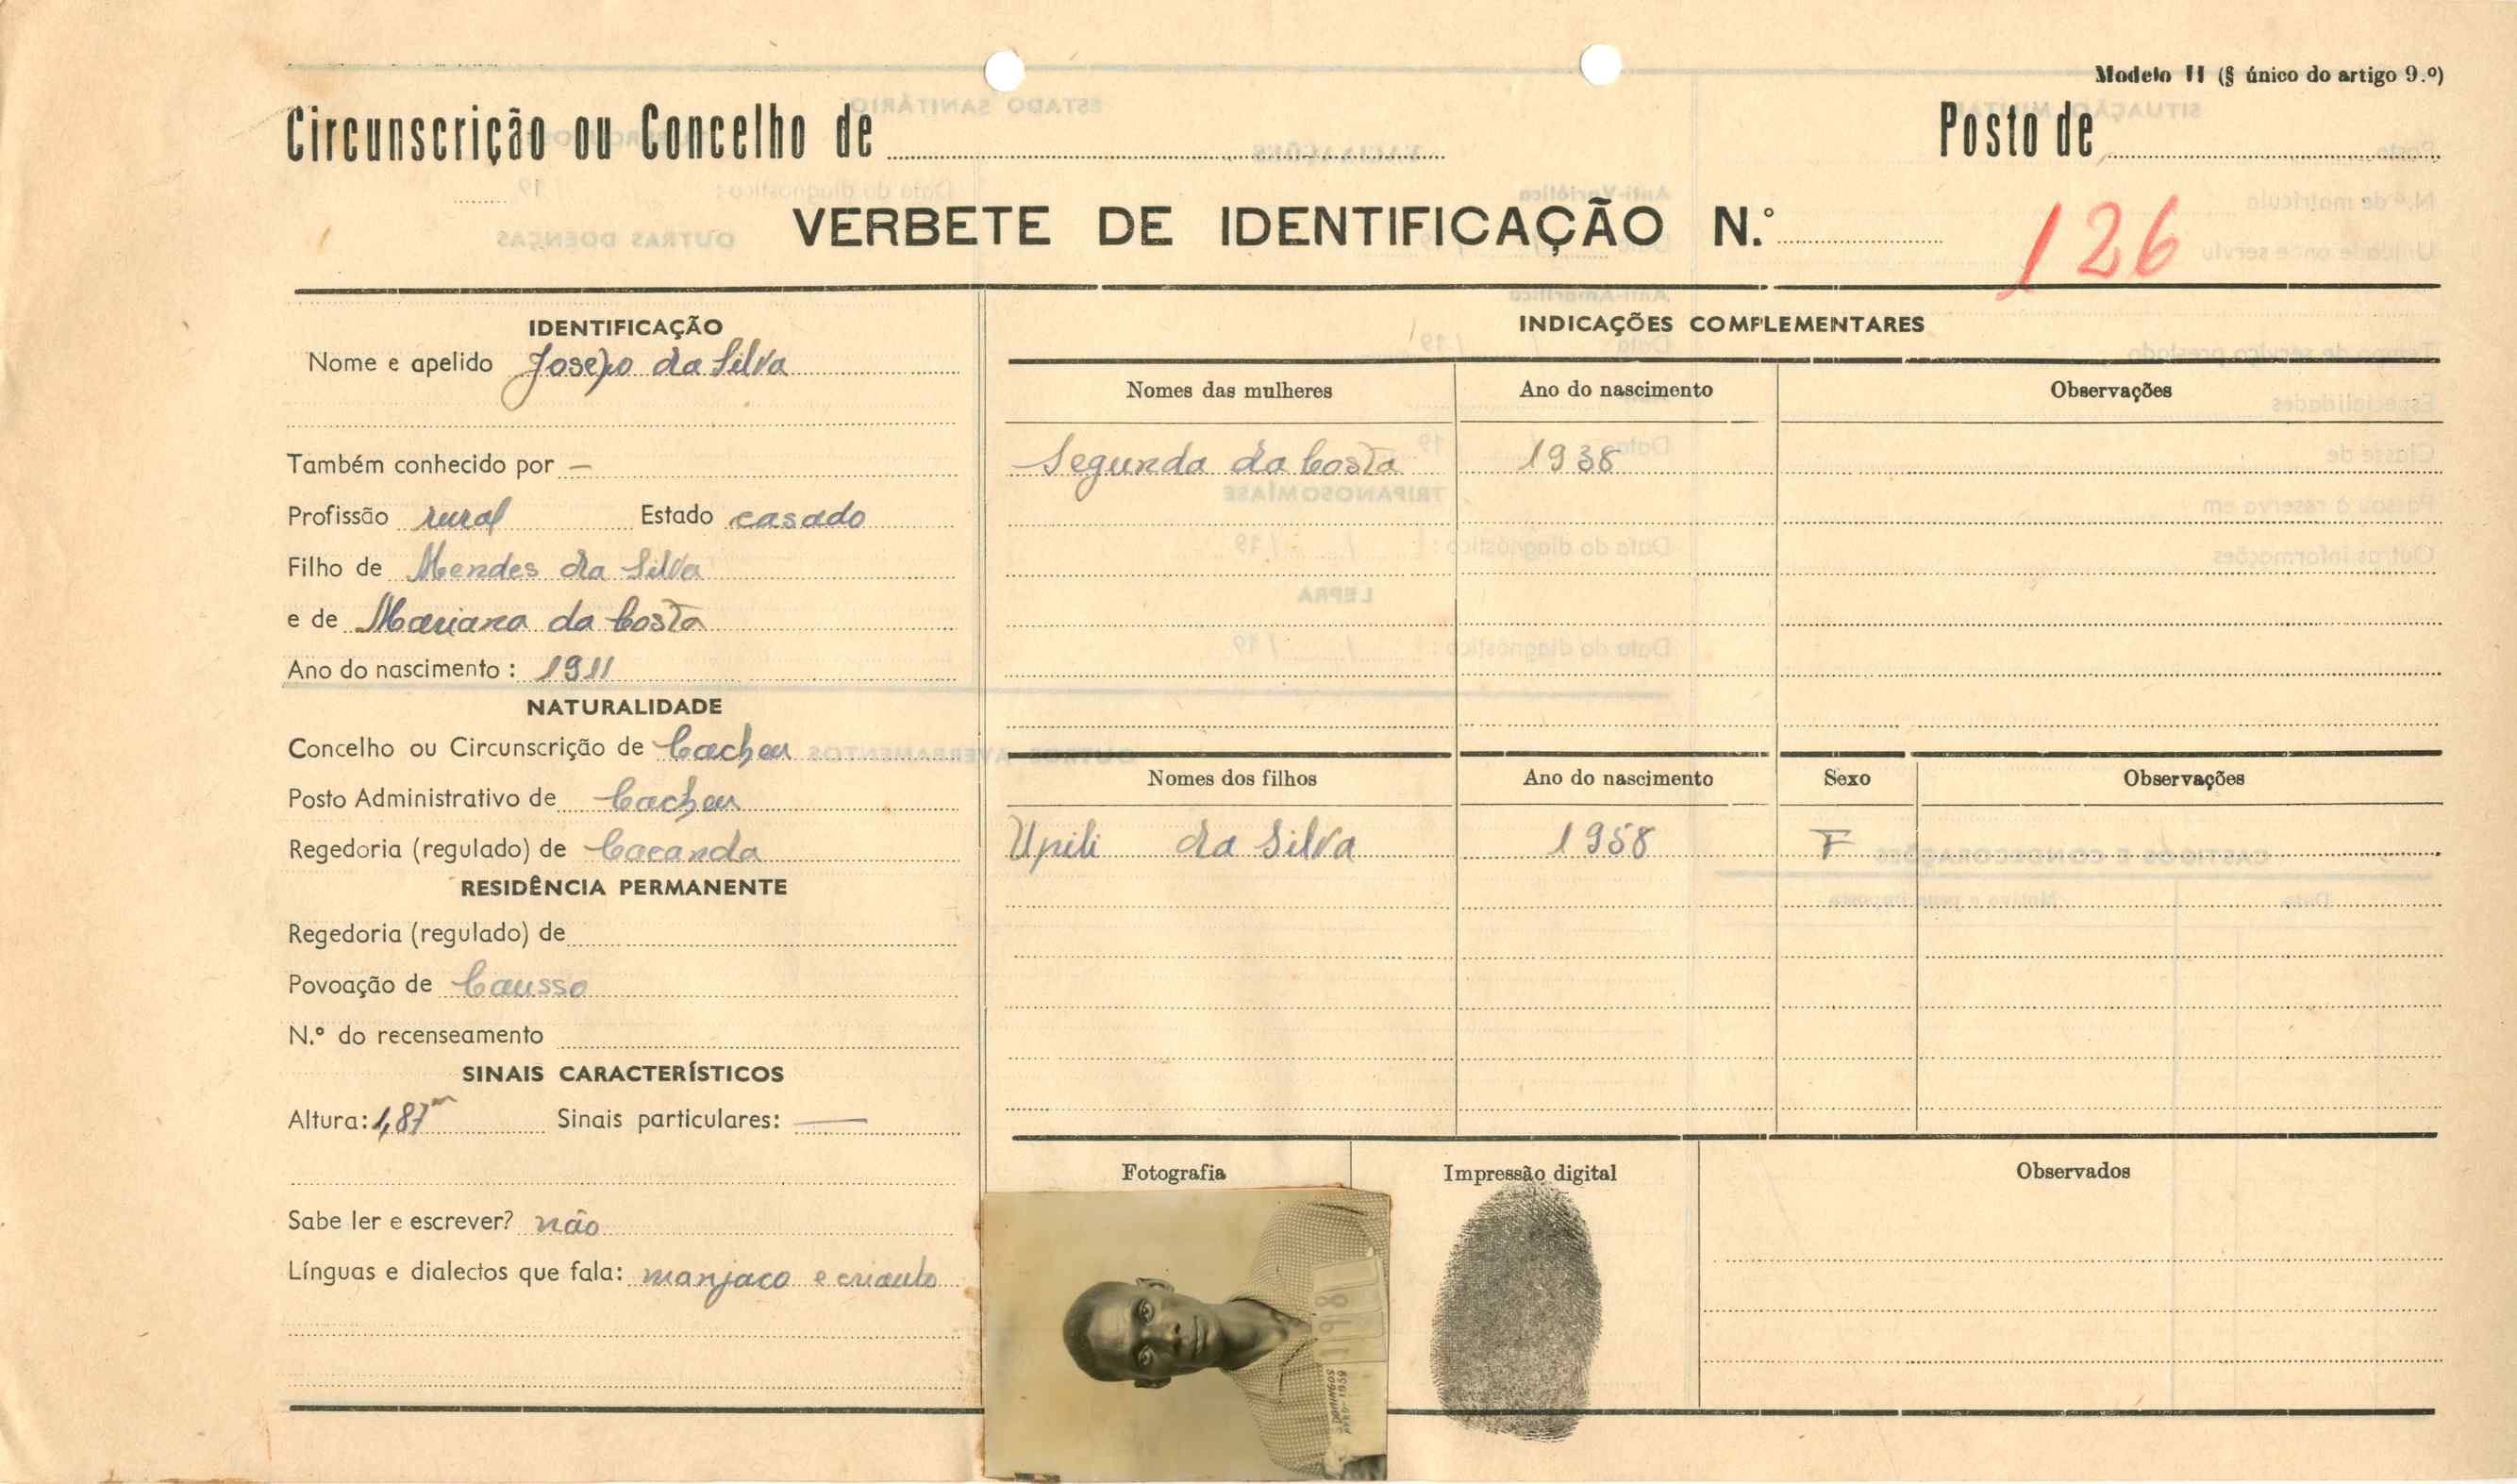 Modelo II (§ único do artigo 9.º)
Circunscrição ou Concelho de Posto de
VERBETE DE IDENTIFICAÇÃO N.º 126
IDENTIFICAÇÃO
Nome e apelido Josepo da Silva
Também conhecido por —
Profissão rural Estado casado
Filho de Mendes da Silva
e de Mariana da Costa
Ano do nascimento : 1911
NATURALIDADE
Concelho ou Circunscrição de Cacheu
Posto Administrativo de Cacheu
Regedoria (regulado) de Cacanda
RESIDÊNCIA PERMANENTE
Regedoria (regulado) de
Povoação de Causso
N.º do recenseamento
SINAIS CARACTERÍSTICOS
Altura: 1,87m Sinais particulares: —
Sabe ler e escrever? não
Línguas e dialectos que fala: manjaco e crioulo
INDICAÇÕES COMPLEMENTARES
Nomes das mulheres Ano do nascimento Observações
Segunda da Costa 1938
Nomes dos filhos Ano do nascimento Sexo Observações
Upili da Silva 1958 F
Fotografia Impressão digital Observados
1198
DOMINGOS
1959